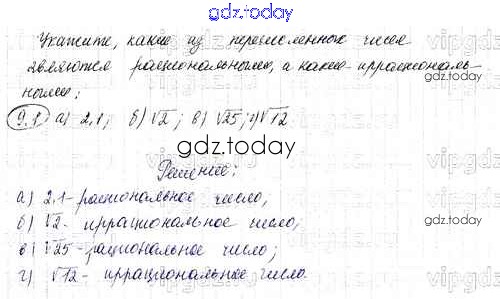 gdz.today
Укажите, какие из перечисленных чисел
являются рациональными, а какие иррациональ-
ными:
9.1 а) 2,1; б) √2; в) √25; г) √12
gdz.today
Решение:
а) 2,1 - рациональное число;
б) √2 - иррациональное число;
в) √25 - рациональное число;
г) √12 - иррациональное число.
gdz.today